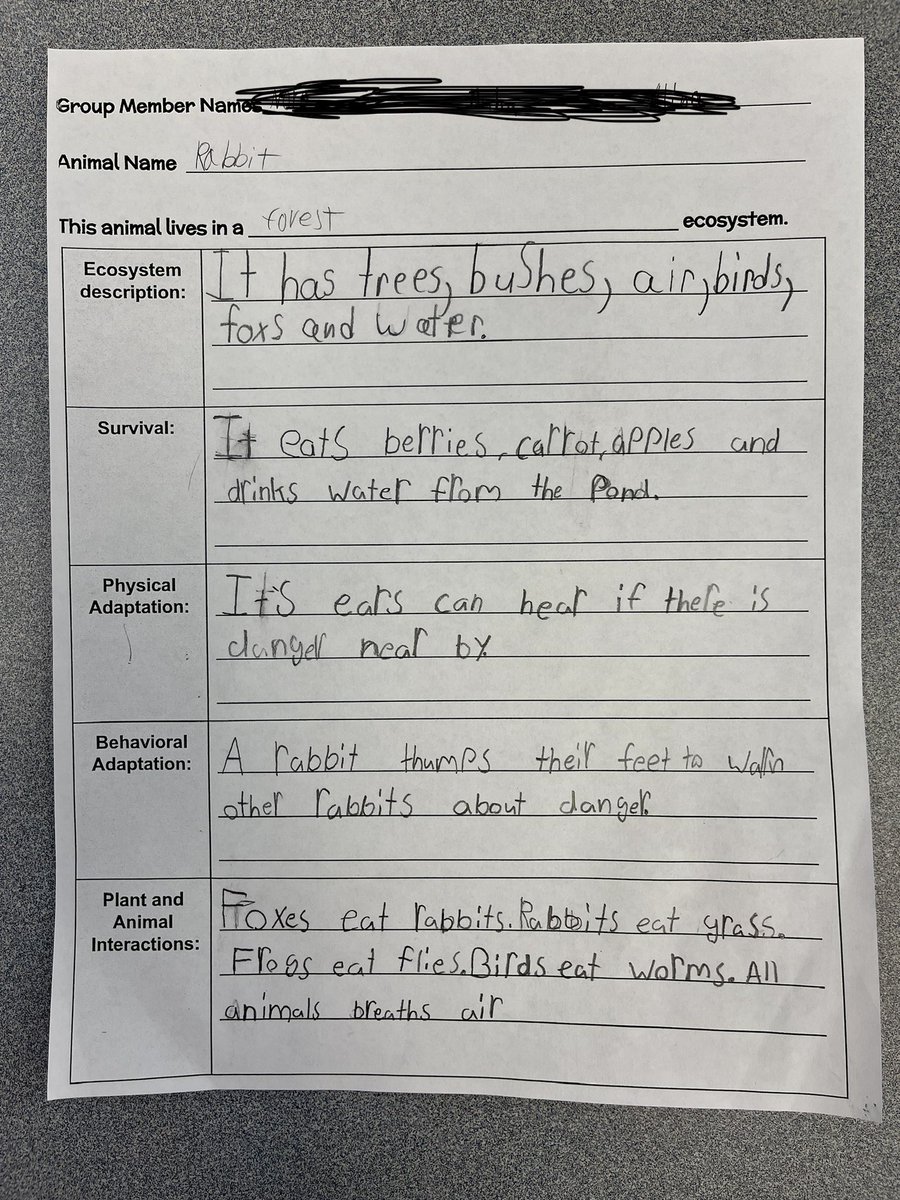 Group Member Names
Animal Name Rabbit
This animal lives in a forest ecosystem.
Ecosystem
description:
It has trees, bushes, air, birds,
foxs and water.
Survival:
It eats berries, carrot, apples and
drinks water from the Pond.
Physical
Adaptation:
It's ears can hear if there is
danger near by.
Behavioral
Adaptation:
A rabbit thumps their feet to warn
other rabbits about danger.
Plant and
Animal
Interactions:
Foxes eat rabbits. Rabbits eat grass.
Frogs eat flies. Birds eat worms. All
animals breaths air